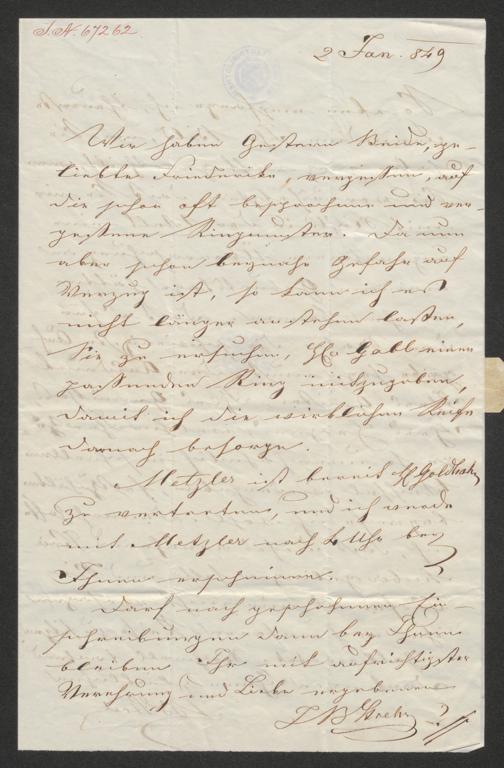 I. N. 67262.
2 Jan. 849
Wir haben Gestern Beide, ge-
liebte Friederike, vergessen, auf
die schon oft besprochene und ver-
gessene Ringmuster. Da nun
aber schon beynahe Gefahr auf
Verzug ist, so kann ich es
nicht länger anstehn laßen,
Sie zu ersuchen, Gabl einen
passenden Ring mitzugeben,
damit ich die wirklichen Reife
darnach besorge.
Metzler ist bereit H. Goldhahn
zu vertreten, und ich werde
mit Metzler nach 4 Uhr bey
Ihnen erscheinen.
Darf nach geschehenen Ein-
schreibungen dann bey Ihnen
bleiben Ihr mit aufrichtigster
Verehrung und Liebe ergebener